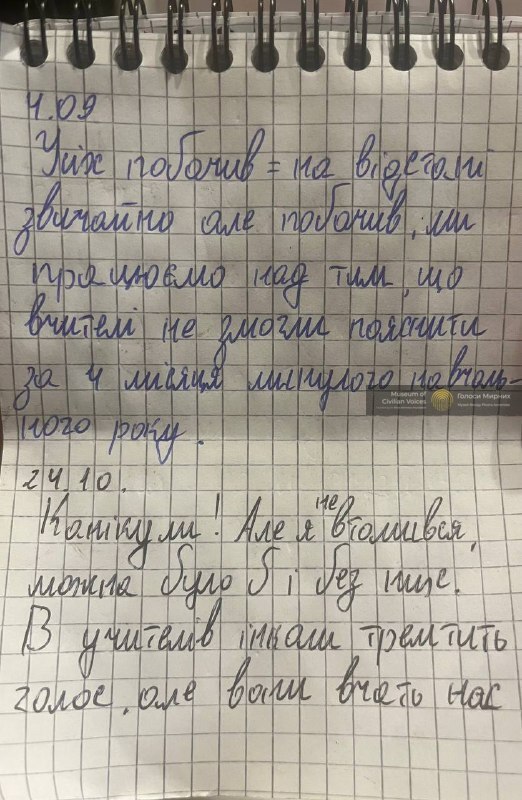 4.09
Усіх побачив = на відстані
звичайно але побачив, ми
працюємо над тим, що
вчителі не змогли пояснити
за 4 місяця минулого навчаль-
ного року.
24.10.
Канікули! Але я не втомився,
можна було б і без них.
В учителів інколи тремтить
голос, але вони вчать нас
Museum of Civilian Voices
Голоси Мирних